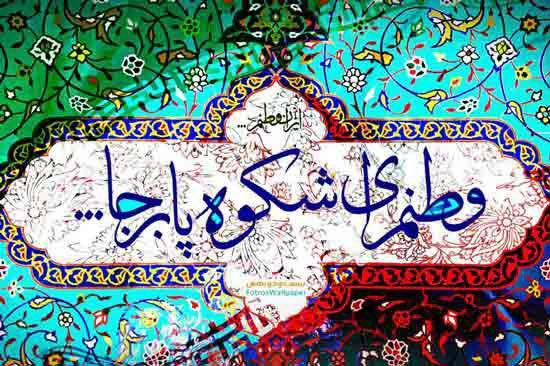 ایران وطنم...
وطنم ای شکوه پا برجا...
FotrosWallpaper